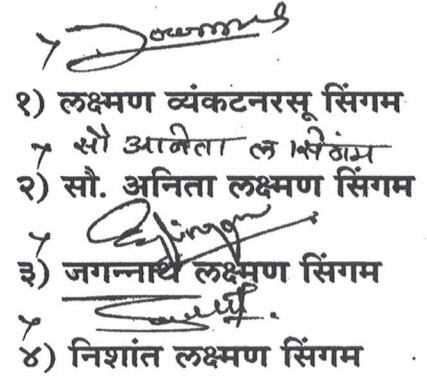 १) लक्ष्मण व्यंकटनरसू सिंगम
सौ आनेता ल सिंगम
२) सौ. अनिता लक्ष्मण सिंगम
३) जगन्नाथ लक्ष्मण सिंगम
४) निशांत लक्ष्मण सिंगम